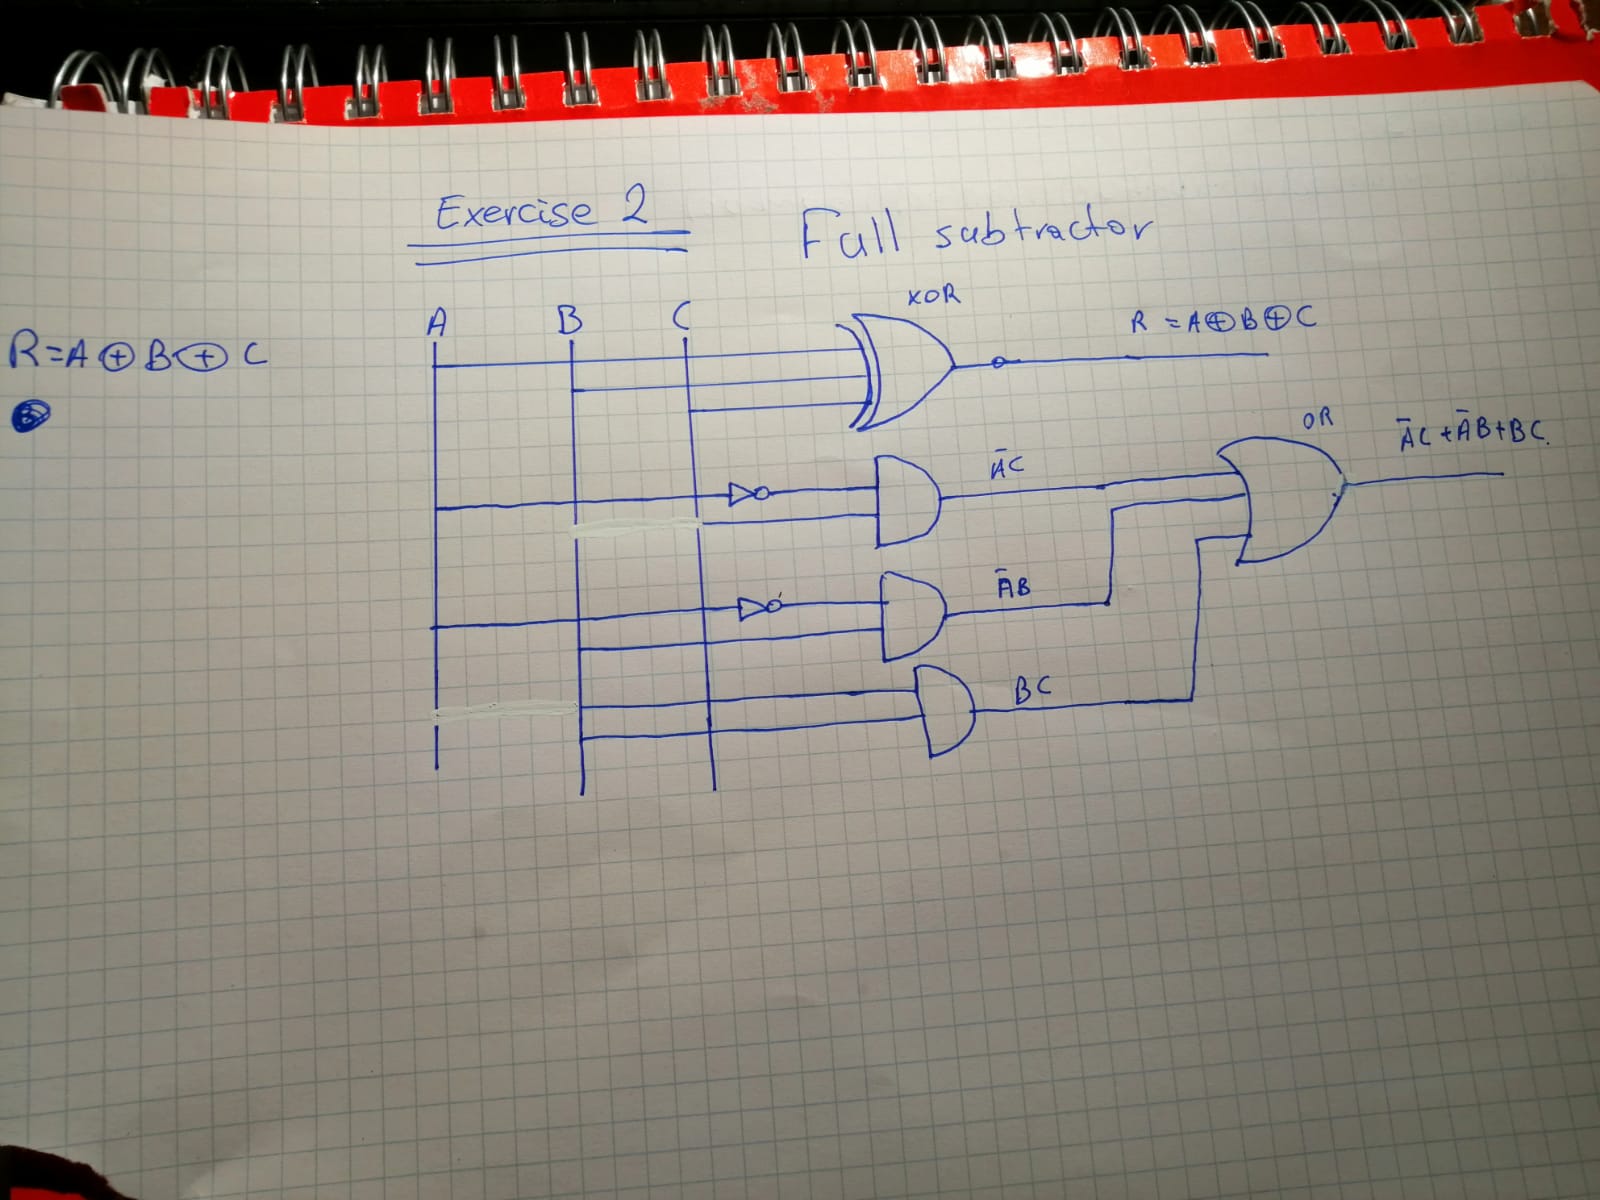 Exercise 2
Full subtractor
R=A⊕B⊕C
A B C
XOR
R = A⊕B⊕C
OR
A̅C
A̅C+A̅B+BC.
A̅B
BC